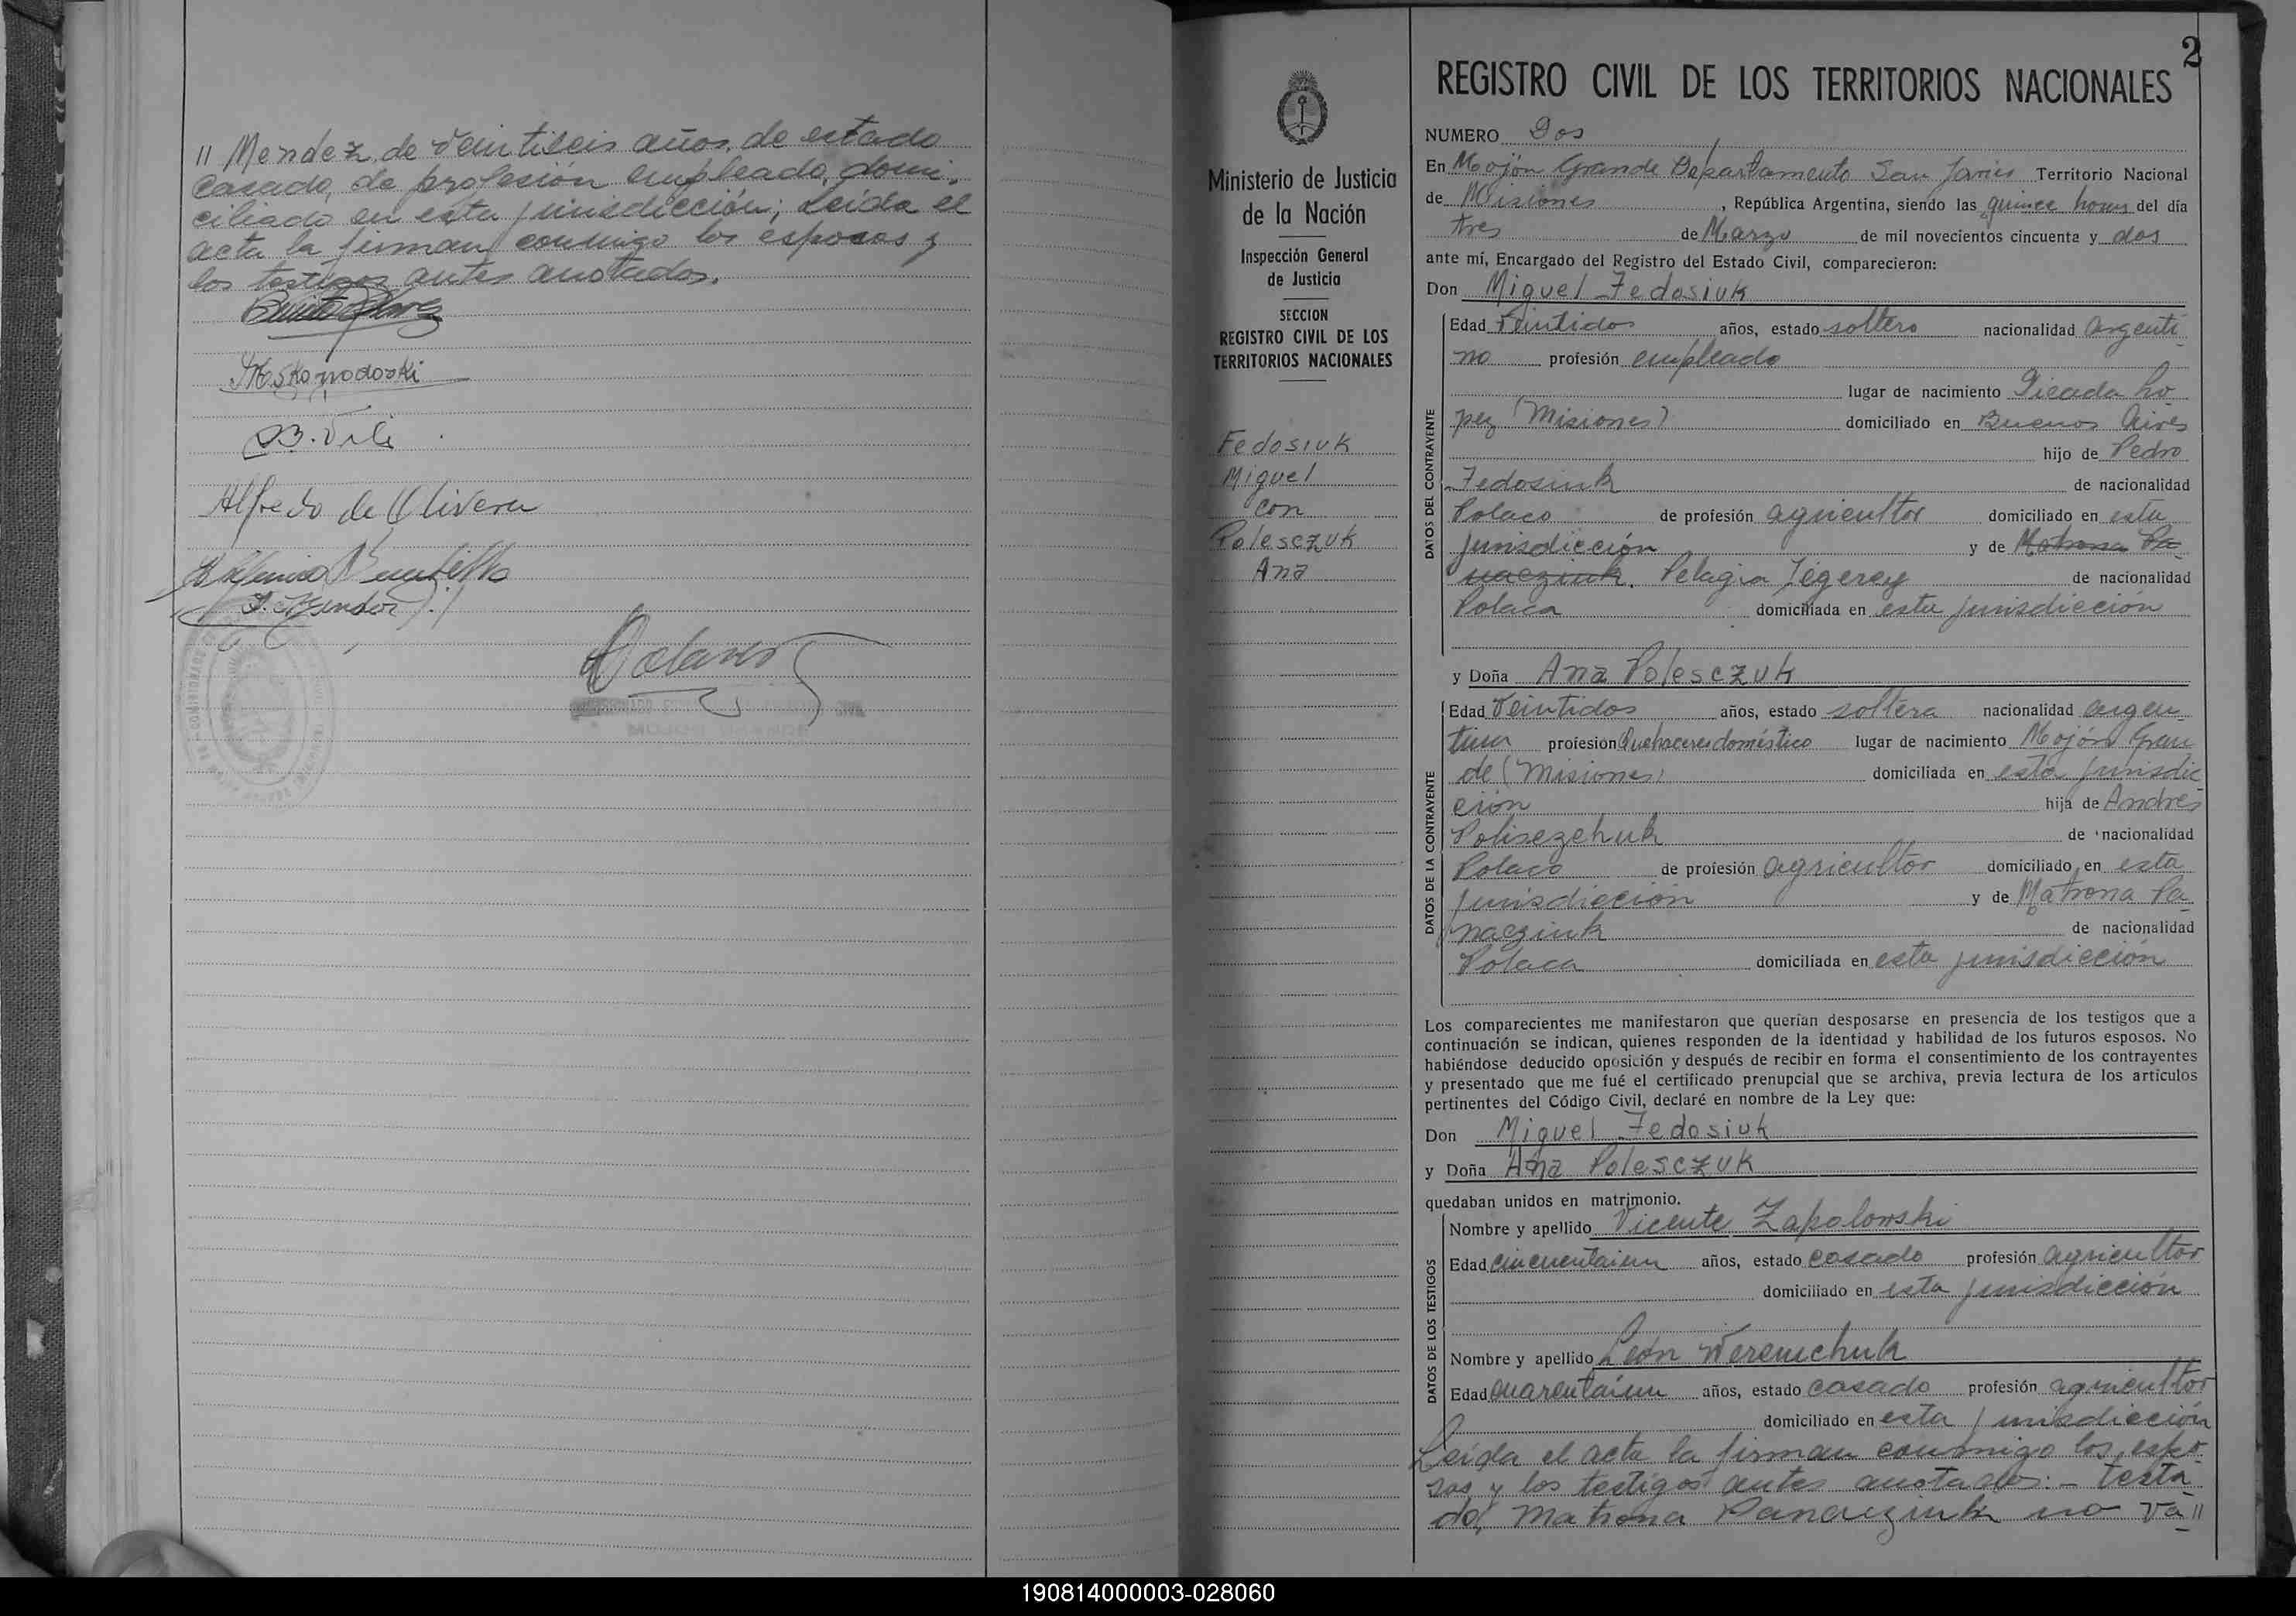 〃 Mendez, de veintiseis años, de estado
casado, de profesión empleado, domi-
ciliado en esta jurisdicción; Leida el
acta la firman conmigo los esposos y
los testigos antes anotados.
Alfredo de Olivera
2
REGISTRO CIVIL DE LOS TERRITORIOS NACIONALES
Ministerio de Justicia
de la Nación
Inspección General
de Justicia
SECCION
REGISTRO CIVIL DE LOS
TERRITORIOS NACIONALES
Fedosiuk
Miguel
con
Polesczuk
Ana
NUMERO Dos
En Mojón Grande Departamento San Javier Territorio Nacional
de Misiones, República Argentina, siendo las quince horas del día
tres de Marzo de mil novecientos cincuenta y dos
ante mí, Encargado del Registro del Estado Civil, comparecieron:
Don Miguel Fedosiuk
DATOS DEL CONTRAYENTE
Edad veintidos años, estado soltero nacionalidad argenti
no profesión empleado
lugar de nacimiento Picada Lo
pez (Misiones) domiciliado en Buenos Aires
hijo de Pedro
Fedosiuk de nacionalidad
Polaco de profesión agricultor domiciliado en esta
jurisdicción y de Matrona Pa
naeziuk. Pelagia Jegerey de nacionalidad
Polaca domiciliada en esta jurisdicción
y Doña Ana Polesczuk
DATOS DE LA CONTRAYENTE
Edad veintidos años, estado soltera nacionalidad argen
tina profesion Quehaceres doméstico lugar de nacimiento Mojón Gran
de (Misiones) domiciliada en esta jurisdic
ción hija de Andrés
Polisezchuk de nacionalidad
Polaco de profesión agricultor domiciliado en esta
jurisdicción y de Matrona Pa
naeziuk de nacionalidad
Polaca domiciliada en esta jurisdicción
Los comparecientes me manifestaron que querían desposarse en presencia de los testigos que a
continuación se indican, quienes responden de la identidad y habilidad de los futuros esposos. No
habiéndose deducido oposición y después de recibir en forma el consentimiento de los contrayentes
y presentado que me fué el certificado prenupcial que se archiva, previa lectura de los artículos
pertinentes del Código Civil, declaré en nombre de la Ley que:
Don Miguel Fedosiuk
y Doña Ana Polesczuk
quedaban unidos en matrimonio.
DATOS DE LOS TESTIGOS
Nombre y apellido Vicente Zapolowski
Edad cincuentaiun años, estado casado profesión agricultor
domiciliado en esta jurisdicción
Nombre y apellido León Weremchuk
Edad cuarentaiun años, estado casado profesión agricultor
domiciliado en esta jurisdicción
Leida el acta la firman conmigo los espo
sos y los testigos antes anotados.- Testa
do, Matrona Panaeziuk no va 〃
190814000003-028060